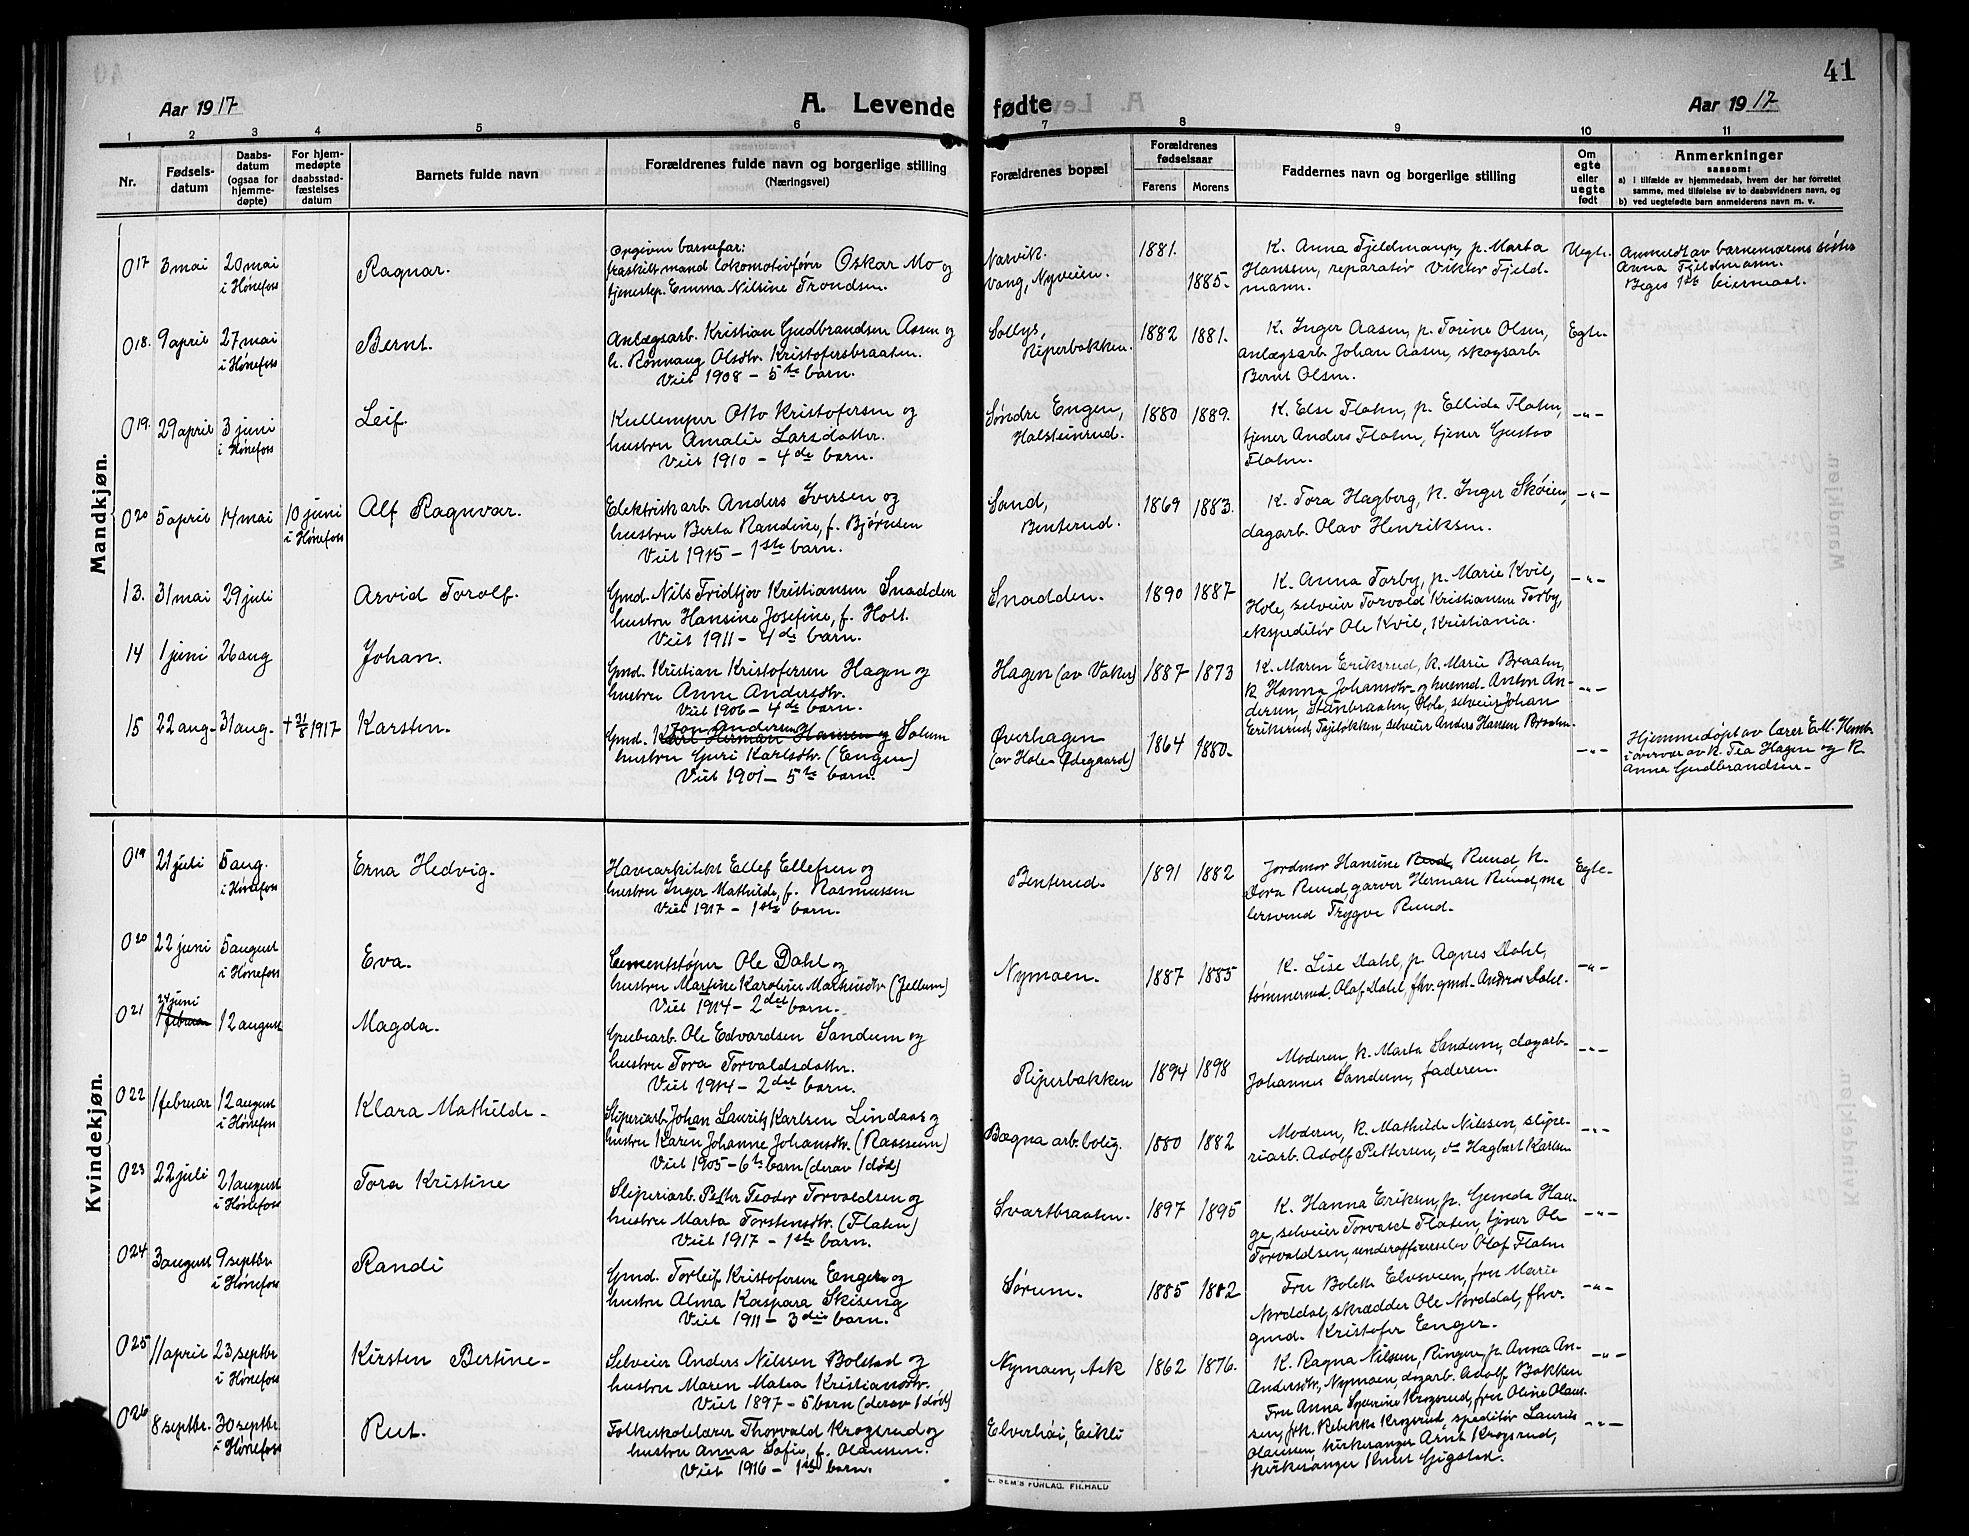 41
Aar 1917
A. Levende fødte
Aar 1917
1 2 3 4 5 6 7 8 9 10 11
Nr.
Fødsels-
datum
Daabs-
datum
(ogsaa for
hjemme-
døpte)
For hjem-
medøpte
daabsstad-
fæstelses
datum
Barnets fulde navn
Forældrenes fulde navn og borgerlige stilling
(Næringsvei)
Forældrenes bopæl
Forældrenes
fødselsaar
Farens Morens
Faddernes navn og borgerlig stilling
Om
egte
eller
uegte
født
Anmerkninger
saasom:
a) i tilfælde av hjemmedaab, hvem der har forrettet
samme, med tilføielse av to daabsvidners navn, og
b) ved uegtefødte barn anmelderens navn m. v.
Mandkjøn.
O17 3 mai 20 mai
i Hønefoss
Ragnar.
Opgiven barnefar:
fraskilt mand lokomotivfører Oskar Mo og
tjenestep. Emma Nilsine Trondsen.
Narvik.
Vang, Nyveien.
1881.
1885.
K. Anna Fjeldmann, p. Marta
Hanssen, reparatør Viktor Fjeld-
mann.
Uegte.
Anmeldt av barnemorens søster
Anna Fjeldmann.
Beges 1ste leiermaal.
O18. 9 april 27 mai
i Hønefoss
Bernt.
Anlægsarb. Kristian Gudbrandsen Aasen og
h. Rønnaug Olsdtr. Kristofersbraaten.
Viet 1908 - 5te barn.
Solbys,
Riperbakken.
1882 1881.
K. Inger Aasen, p. Torine Olsen,
anlægsarb. Johan Aasen, skogsarb.
Bernt Olsen.
Egte.
O19. 29 april 3 juni
i Hønefoss
Leif.
Kullemper Otto Kristofersen og
hustru Amalie Larsdatter.
Viet 1910 - 4de barn.
Søndre Engen,
Halsteinrud.
1880 1889.
K. Else Flaten, p. Ellida Flaten,
tjener Anders Flaten, tjener Gustav
Flaten.
-"-
O20 5 april 14 mai 10 juni
i Hønefoss
Alf Ragnvar.
Elektriskarb. Anders Iversen og
hustru Berta Randine, f. Bjørnsen
Viet 1915 - 1ste barn.
Sand,
Benterud.
1869 1883.
K. Tora Hagberg, k. Inger Skøien,
dagarb. Olav Henriksen.
-"-
13. 31 mai 29 juli
Arvid Torolf.
Gmd. Nils Fridtjov Kristiansen Snadden
hustru Hansine Josefine, f. Holt.
Viet 1911 - 4de barn.
Snadden.
1890 1887
K. Anna Torby, p. Marie Kvil,
Hole, selveier Torvald Kristiansen Torby,
ekspeditør Ole Kvil, Kristiania.
-"-
14 1 juni 26 aug
Johan.
Gmd. Kristian Kristofersen Hagen og
hustru Anne Andersdtr.
Viet 1906 - 4de barn.
Hagen (av Vaker)
1887 1873
K. Maren Eriksrud, k. Marie Braaten,
k. Hanna Johansdtr. og husmd. Anton An-
dersen, Stenbraaten, Hole, selveier Johan
Eriksrud, selveier Anders Hansen Braaten.
-"-
15 22 aug. 31 aug. † 31/8 1917
Karsten.
Jon Andersen
Gmd. Karl Herman Hansen og Solum
hustru Guri Karlsdtr. (Engen)
Viet 1901 - 5te barn.
Øverhagen
(av Hole Ødegaard)
1864 1880.
-"-
Hjemmedøpt av lærer E. M.
i overvær av k. Tea Hagen og k.
Anna Gudbrandsen.
Kvindekjøn.
O19 21 juli 5 aug.
i Hønefoss
Erna Hedvig.
Havearkitekt Ellef Ellefsen og
hustru Inger Mathilde, f. Rasmussen
Viet 1917 - 1ste barn.
Benterud.
1891 1882
Jordmor Hansine Rud, Ruud, k.
Dora Ruud, garver Herman Ruud, ma
lersvend Trygve Ruud.
Egte.
O20 22 juni 5 august
i Hønefoss
Eva.
Cementstøper Ole Dahl og
hustru Martine Karoline Mathisdtr (Jellum)
Viet 1914 - 2det barn.
Nymoen.
1887 1885
K. Lise Dahl, p. Agnes Dahl,
tømmermd. Olaf Dahl, fhv. gmd. Andreas Dahl.
-"-
O21 24 juni
1 februar 12 august
Magda.
Grubearb. Ole Edvardsen Sandum og
hustru Tora Torvaldsdatter.
Viet 1914 - 2det barn.
Riperbakken
1894 1898
Moderen, k. Marta Sandum, dagarb.
Johannes Sandum, faderen.
-"-
O22 1 februar 12 august
i Hønefoss
Klara Mathilde.
Sliperiarb. Johan Lauritz Karlsen Lindaas og
hustru Karen Johanne Johansdtr. (Rasseum)
Viet 1905 - 6te barn (derav 1 død)
Bægna arb.bolig.
1880 1882
Moderen, k. Mathilde Nilssen, slipe-
riarb. Adolf Pettersen, do Hagbart Karlsen
-"-
O23 22 juli 21 august
i Hønefoss
Tora Kristine
Sliperiarb. Petter Teodor Torvaldsen og
hustru Marta Torstensdtr. (Flaten)
Viet 1917 - 1ste barn.
Svartbraaten.
1897 1895
K. Hanna Eriksen, p. Gunda Hau-
ge, selveier Torvald Flaten, tjener Ole
Torvaldsen, underofficerselev Olaf Flaten
-"-
O24 3 august 9 septbr
i Hønefoss
Randi
Gmd. Torleif Kristofersen Enger og
hustru Alma Kaspara Skiseng
Viet 1911 - 3die barn.
Sørum.
1885 1882
Fru Bolette Elvsveen, fru Marie
Norddal, skrædder Ole Norddal, fhv.
gmd. Kristofer Enger.
-"-
O25 11 april 23 septbr
i Hønefoss
Kirsten Bertine.
Selveier Anders Nilssen Bolstad og
hustru Maren Matea Kristiansdtr.
Viet 1897 - 5 barn (derav 1 død)
Nymoen, Ask
1862 1876.
K. Ragna Nilsen, Ringen, p. Anna An-
Andersdtr, Nymoen, dagarb. Adolf Bakken
-"-
O26 8 septbr. 30 septbr
i Hønefoss
Rut.
Folkeskolelærer Thorvald Krogsrud og
hustru Anna Sofie, f. Olaussen.
Viet 1916 - 1ste barn.
Elverhøi, Eikli
Fru Anna Severine Krogsrud, fru Oline Olaus-
sen, frk. Rebekka Krogsrud, speditør Laurits
Olaussen, kirkesanger Arnt Krogsrud,
kirkesanger Knut Gigstad.
-"-
SEM'S FORLAG, FR.HALD